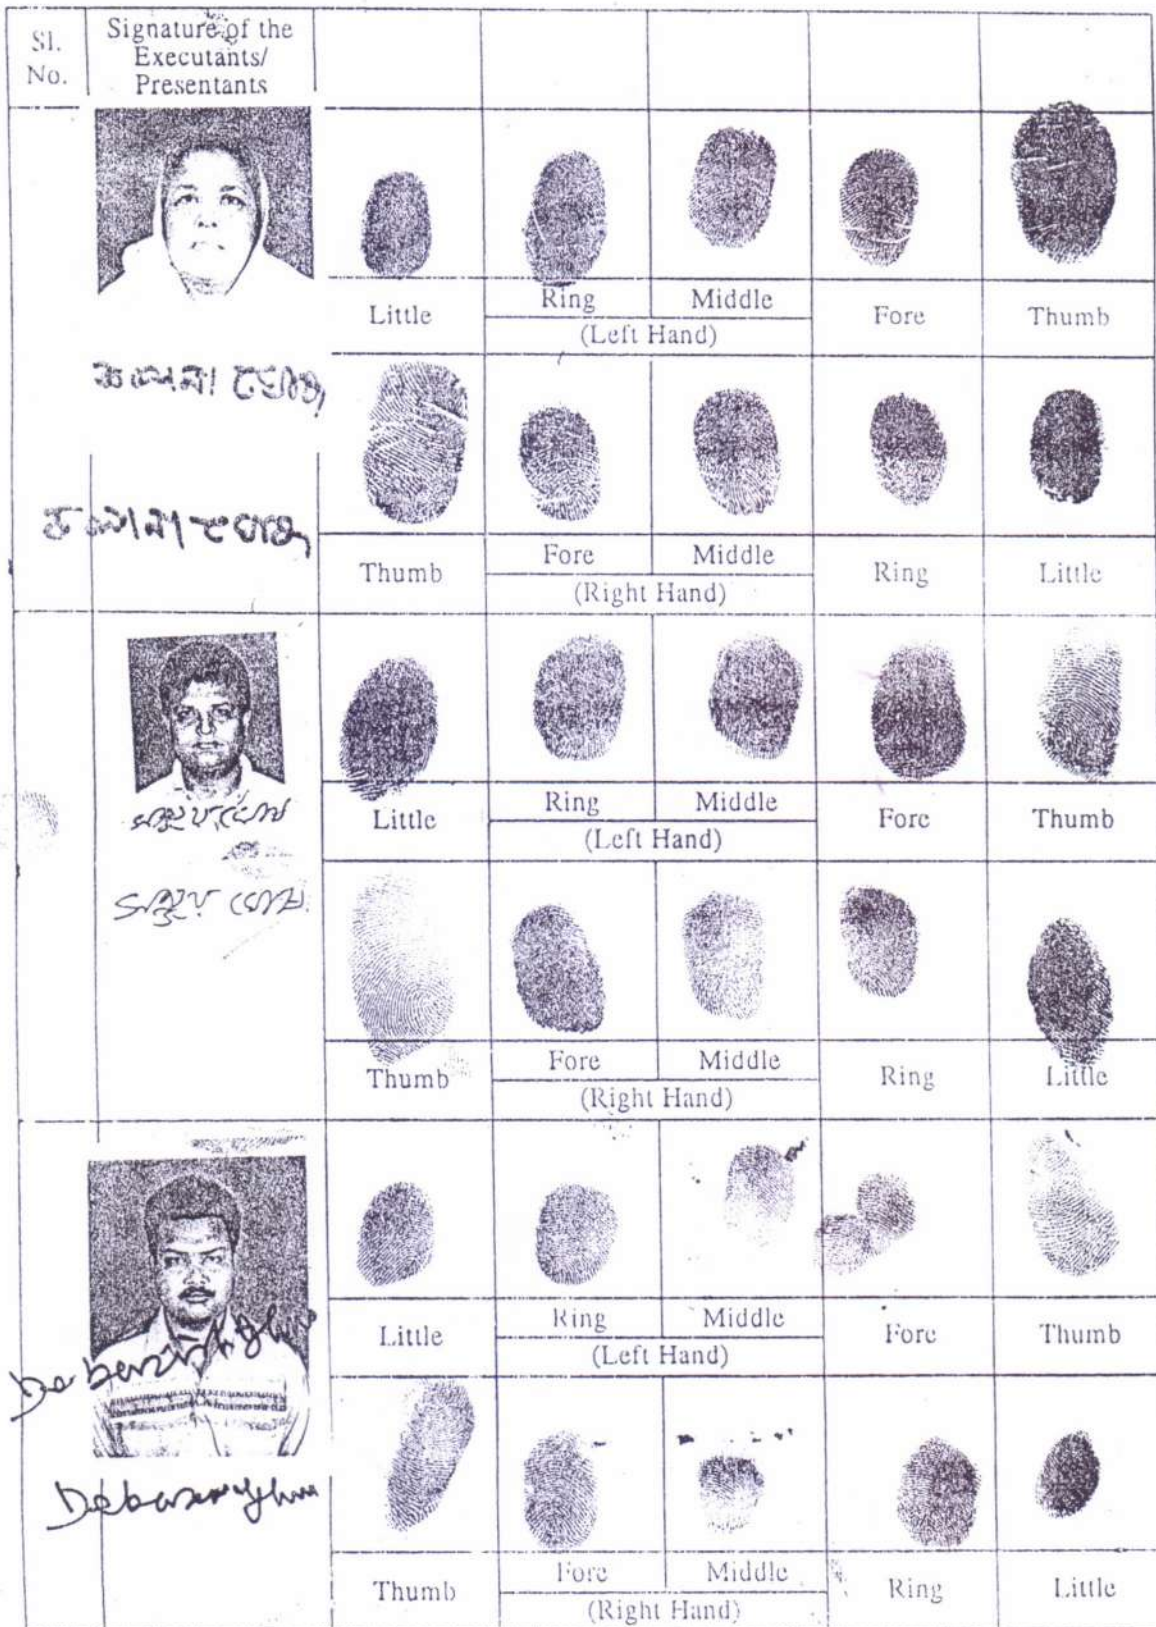 Sl.
No.
Signature of the
Executants/
Presentants
Little
Ring
Middle
Fore
Thumb
(Left Hand)
Thumb
Fore
Middle
Ring
Little
(Right Hand)
Little
Ring
Middle
Fore
Thumb
(Left Hand)
Thumb
Fore
Middle
Ring
Little
(Right Hand)
Little
Ring
Middle
Fore
Thumb
(Left Hand)
Thumb
Fore
Middle
Ring
Little
(Right Hand)